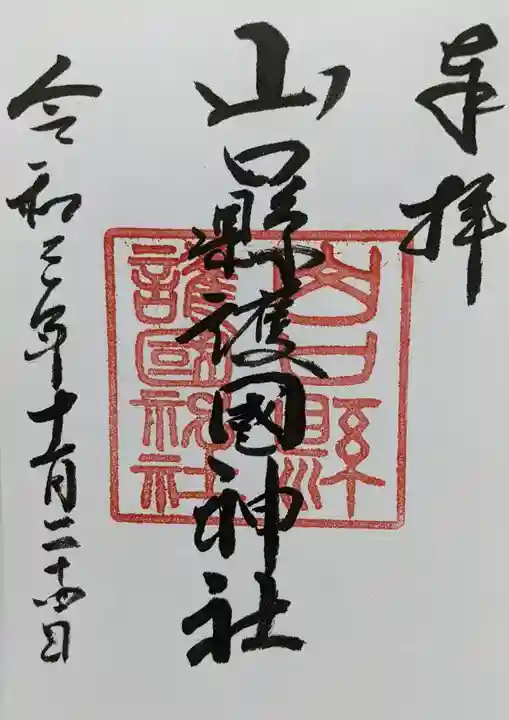 奉拝
山口縣護國神社
山口縣
護國神社
令和三年十一月二十四日